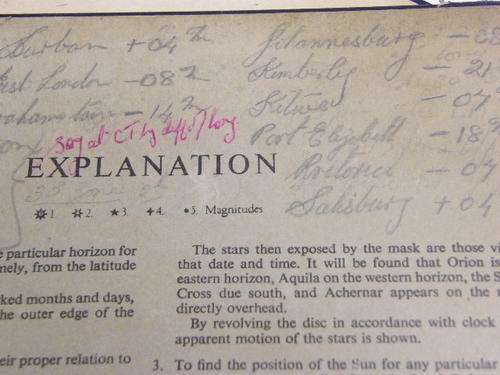 Durban + 04 m
East London - 08 m
Grahamstown - 14 m
Johannesburg - 08
Kimberley - 21
Kitwe - 07
Port Elizabeth - 18 m
Pretoria - 07
Salisbury + 04
EXPLANATION
1. 2. 3. 4. 5. Magnitudes
e particular horizon for
mely, from the latitude
ked months and days,
he outer edge of the
eir proper relation to
The stars then exposed by the mask are those vi
that date and time. It will be found that Orion is
eastern horizon, Aquila on the western horizon, the S
Cross due south, and Achernar appears on the
directly overhead.
By revolving the disc in accordance with clock
apparent motion of the stars is shown.
3. To find the position of the Sun for any particular